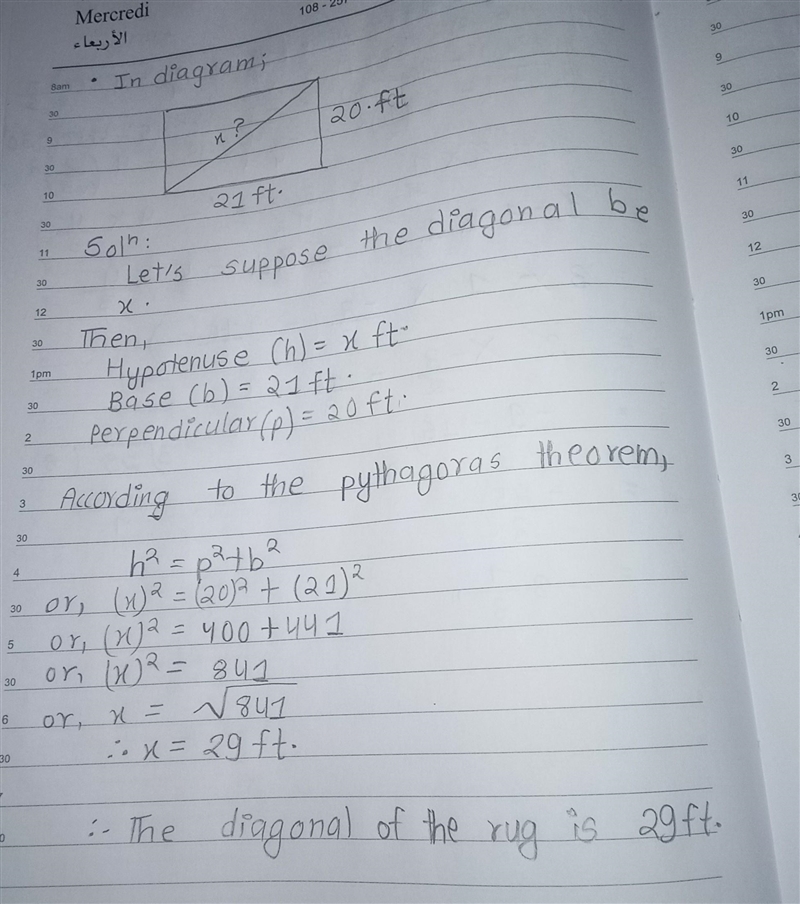 Mercredi
108 - 257
الأربعاء
8am • In diagram;
30
9 x? 20.ft
30
10 21 ft.
30
11 Solⁿ:
30 Let's suppose the diagonal be
12 x.
30 Then,
1pm Hypotenuse (h) = x ft.
30 Base (b) = 21 ft.
2 Perpendicular (p) = 20 ft.
30
3 According to the pythagoras theorem,
30
4 h² = p²+b²
30 or, (x)² = (20)² + (21)²
5 or, (x)² = 400 + 441
30 or, (x)² = 841
6 or, x = √841
30 ∴ x = 29 ft.
∴ The diagonal of the rug is 29 ft.
30
9
30
10
30
11
30
12
30
1pm
30
2
30
3
30